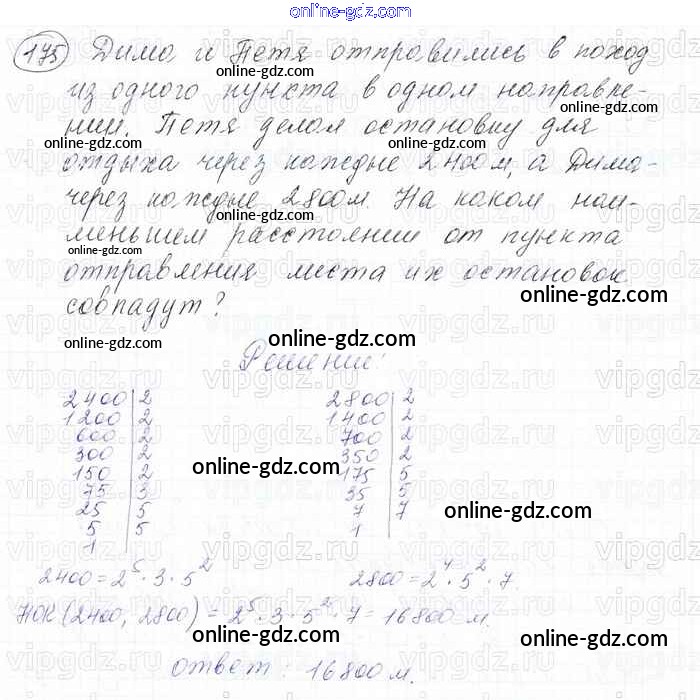 online-gdz.com
175 Дима и Петя отправились в поход
online-gdz.com
из одного пункта в одном направле-
online-gdz.com
нии. Петя делал остановку для
online-gdz.com
отдыха через каждые 2400 м, а Дима-
через каждые 2800 м. На каком наи-
online-gdz.com
меньшем расстоянии от пункта
отправления места их остановок
online-gdz.com
совпадут?
online-gdz.com
Решение:
online-gdz.com
2400 | 2
1200 | 2
600 | 2
300 | 2
150 | 2
75 | 3
25 | 5
5 | 5
1
2800 | 2
1400 | 2
700 | 2
350 | 2
175 | 5
35 | 5
7 | 7
1
online-gdz.com
online-gdz.com
2400 = 2⁵ · 3 · 5²
2800 = 2⁴ · 5² · 7
НОК (2400, 2800) = 2⁵ · 3 · 5² · 7 = 16800 м.
online-gdz.com
online-gdz.com
ответ: 16800 м.
vipgdz.ru